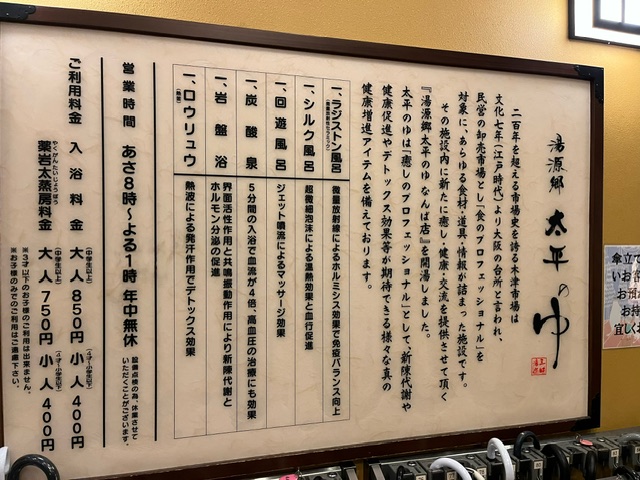 湯源郷 太平のゆ
二百年を超える市場史を誇る木津市場は
文化七年（江戸時代）より大阪の台所と言われ、
民営の卸売市場とし『食のプロフェッショナル』を
対象に、あらゆる食材・道具・情報が詰まった施設です。
その施設内に新たに癒し・健康・交流を提供させて頂く
『湯源郷太平のゆ なんば店』を開湯しました。
太平のゆは『癒しのプロフェッショナル』として、新陳代謝や
健康促進やデトックス効果等が期待できる様々な真の
健康増進アイテムを備えております。
一、ラジストン風呂
微量放射線によるホルミシス効果で免疫バランス向上
一、シルク風呂
超微細泡沫による温熱効果と血行促進
一、回遊風呂
ジェット噴流によるマッサージ効果
一、炭酸泉
5分間の入浴で血流が4倍、高血圧の治療にも効果
一、岩盤浴
界面活性作用と共鳴振動作用により新陳代謝と
ホルモン分泌の促進
一、ロウリュウ
熱波による発汗作用でデトックス効果
営業時間 あさ8時〜よる1時 年中無休
設備点検の為、休業させて
いただくことがございます。
ご利用料金 入浴料金 大人 850円 小人 400円
（中学生以上） （4才〜小学生以下）
薬岩太蒸房料金 大人 750円 小人 400円
やくがんたいじょうぼう （中学生以上） （4才〜小学生以下）
※3才以下のお子様のご利用は出来ません。
※お子様のみでのご利用はご遠慮下さい。
傘立て
いお客
お預
お持
宜しくお